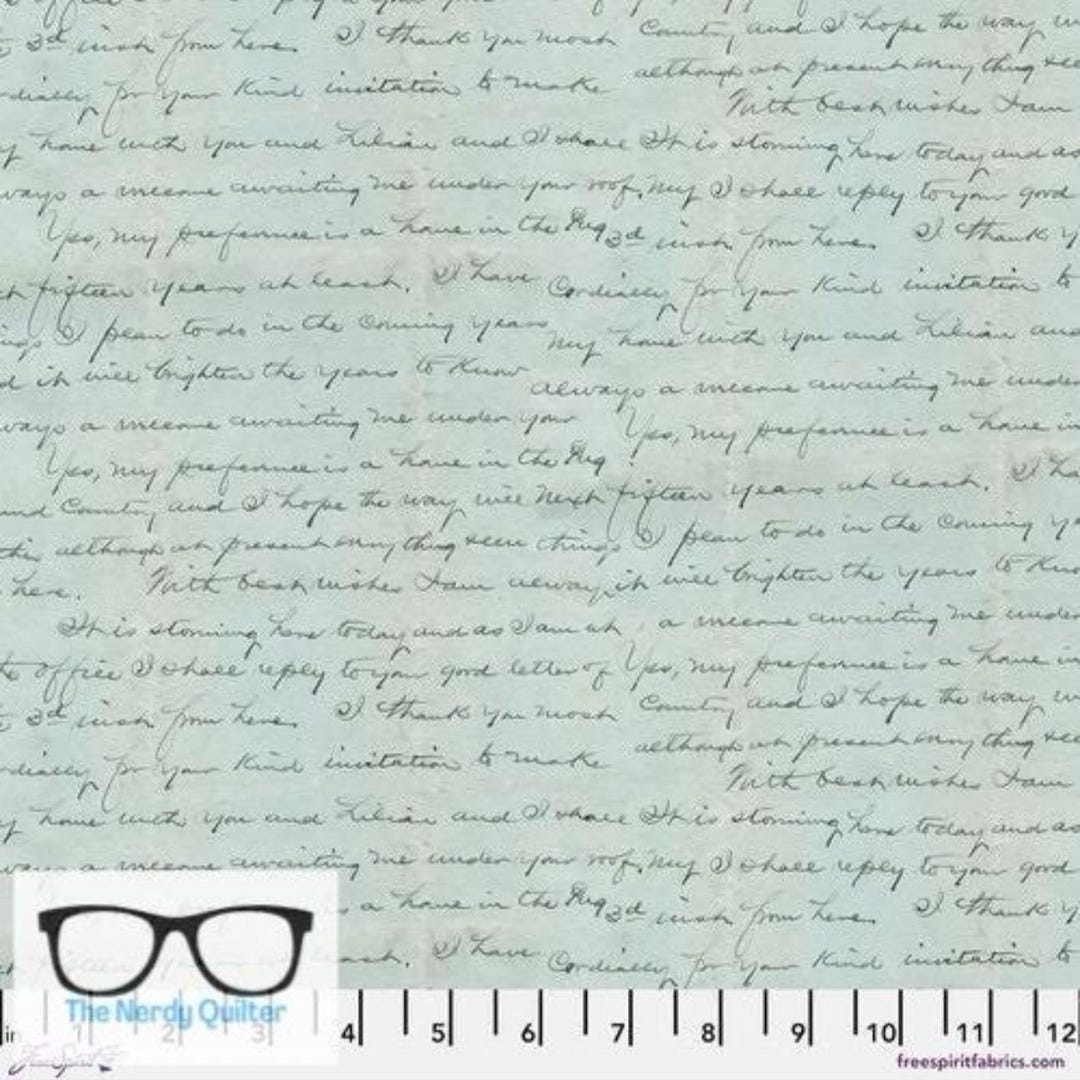 3d inst from here. I thank you most Country and I hope the way
cordially for your kind invitation to make although at present anything see
With best wishes I am
home with you and Lilian and I shall It is storming here today and as
always a welcome awaiting me under your roof. My I shall reply to your good
Yes, my preference is a home in the 3d inst from here. I thank y
fifteen years at least. I have Cordially for your kind invitation to
I plan to do in the coming years my home with you and Lilian and
d it will brighten the years to know always a welcome awaiting me under
ways a welcome awaiting me under your Yes, my preference is a home in
Yes, my preference is a home in the
and Country and I hope the way will next fifteen years at least. I ha
this although at present anything seen things I plan to do in the coming ye
here. With best wishes I am always it will brighten the years to kno
It is storming here today and as I am at a welcome awaiting me under
office I shall reply to your good letter of Yes, my preference is a home in
3d inst from here. I thank you most Country and I hope the way
cordially for your kind invitation to make although at present anything see
With best wishes I am
home with you and Lilian and I shall It is storming here today and as
ways a welcome awaiting me under your roof. My I shall reply to your good
is a home in the 3d inst from here. I thank y
least. I have Cordially for your kind invitation to
The Nerdy Quilter
in 1 2 3 4 5 6 7 8 9 10 11 12
FreeSpirit freespiritfabrics.com